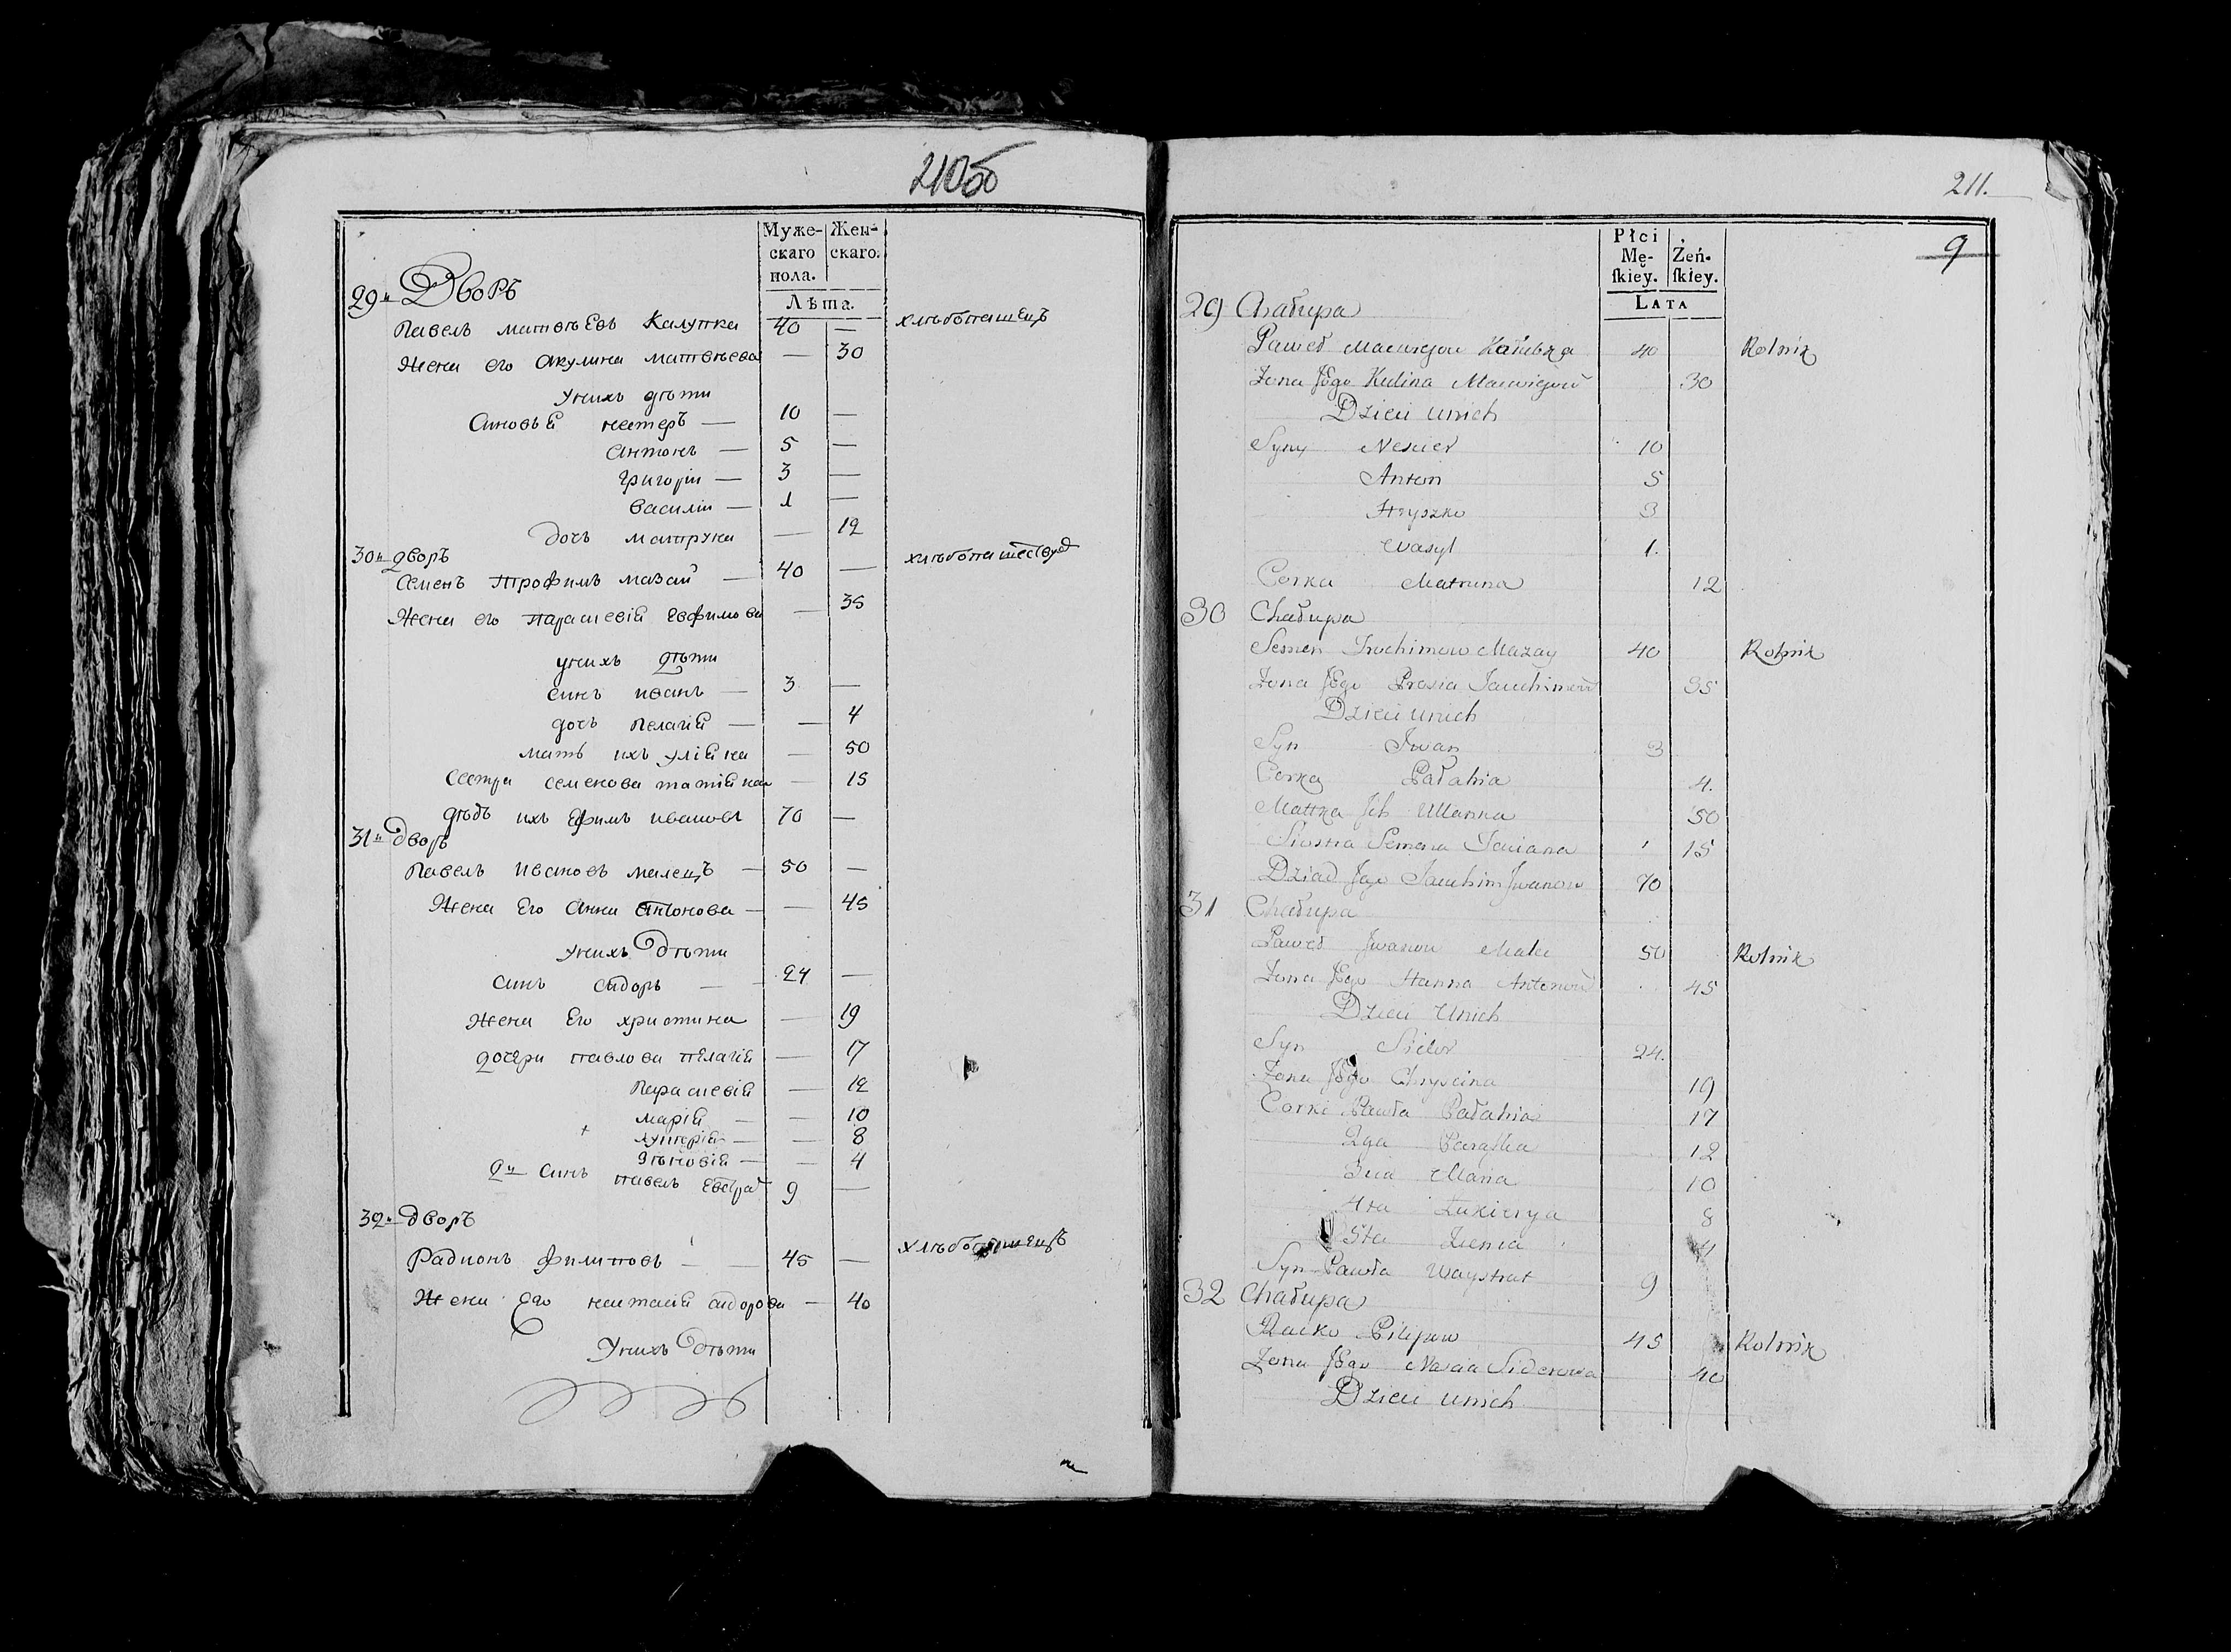 210об
Муже-
скаго
пола.
Жен-
скаго.
Лѣта.
29й Дворъ
Павелъ матвѣевъ Калупка 40 — хлѣбопашецъ
Жена его Акулина матвѣева — 30
Унихъ дѣти
Синовья нестеръ — 10 —
Антонъ — 5 —
Григорiи — 3 —
Василiи — 1 —
дочь матруна — 12
30й дворъ
Семенъ Трофимъ мазай — 40 —
Жена его Параскевiя Евфимова — 35
унихъ дѣти
синъ иванъ — 3 —
дочь Пелагiя — — 4
мать ихъ улiяна — 50
Сестра семенова татiяна — 15
дѣдъ ихъ Ефимъ ивановъ 70 —
31й дворъ
Павелъ Ивановъ малецъ — 50 —
Жена Его Анна Антонова — — 45
Унихъ дѣти
синъ сидоръ — 24 —
Жена Его христина — 19
дочери павлова пелагiя — 17
Параскевiя — 12
марiя — — 10
лукерiя — — 8
зѣновiя — — 4
2й синъ павелъ Евстрат 9 —
32й дворъ
Радионъ Филиповъ — 45 — хлѣбопашецъ
Жена Его настасiя сидорова — 40
Унихъ дѣти
211.
9
Płci
Mę-
ſkiey.
Żeń-
ſkiey.
LATA
29 Chałupa
Paweł Maciejow Kałubka 40 Rolnik
Zona Jego Kulina Maciejow 30
Dzieci unich
Syny Nescier 10
Anton 5
Hryszko 3
Wasyl 1.
Corka Matruna 12
30 Chałupa
Semen Trochimow Mazay 40 Rolnik
Zona Jego Prosia Jauchimow 35
Dzieci unich
Syn Iwan 3
Corka Pałahia 4.
Mattka Jch Ullanna 50
Siostra Semena Taciana 15
Dziad Jego Jauchim Jwanow 70
31 Chałupa
Paweł Jwanow Malec 50 Rolnik
Zona Jego Hanna Antonow 45
Dzieci Unich
Syn Sidor 24.
Zona Jego Chryscina 19
Corki Pawła Pałahia 17
2ga Paraſka 12
3cia Maria 10
4ta Łukierya 8
5ta Zienia 4
Syn Pawła Waystrat 9
32 Chałupa
Racko Pilipow 45 Rolnik
Zona Jego Nascia Siderowa 40
Dzieci unich